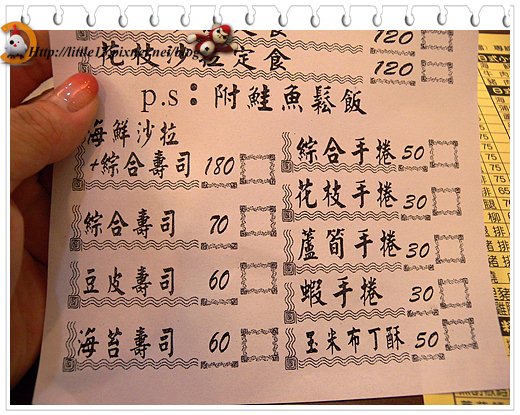 Http://little17.pixnet.net/blog
120
花枝沙拉定食 120
p.s：附鮭魚鬆飯
海鮮沙拉
+綜合壽司 180
綜合壽司 70
豆皮壽司 60
海苔壽司 60
綜合手捲 50
花枝手捲 30
蘆筍手捲 30
蝦手捲 30
玉米布丁酥 50